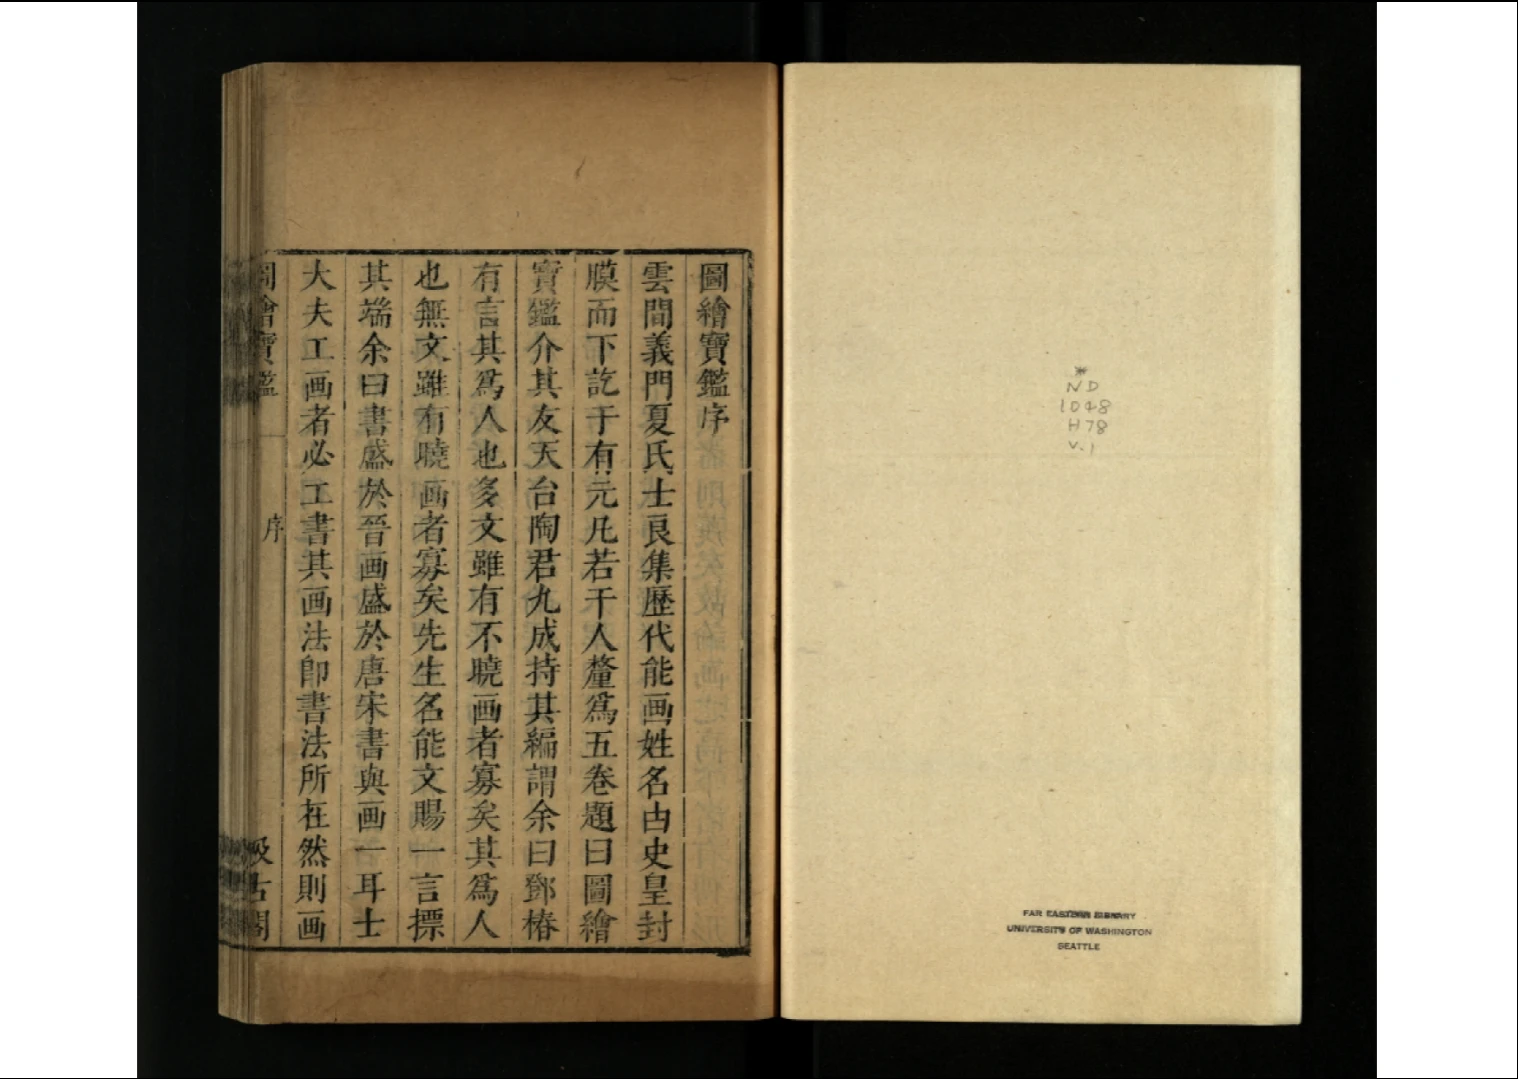 * 
ND
1048
H78
v.1
FAR EASTERN LIBRARY
UNIVERSITY OF WASHINGTON
SEATTLE
圖繪寶鑑序
雲間義門夏氏士良集歷代能画姓名由史皇封
膜而下訖于有元凡若干人釐爲五卷題曰圖繪
寶鑑介其友天台陶君九成持其編謂余曰鄧椿
有言其爲人也多文雖有不曉画者寡矣其爲人
也無文雖有曉画者寡矣先生名能文賜一言摽
其端余曰書盛於晉画盛於唐宋書與画一耳士
大夫工画者必工書其画法卽書法所在然則画
圖繪寶鑑 序 汲古閣